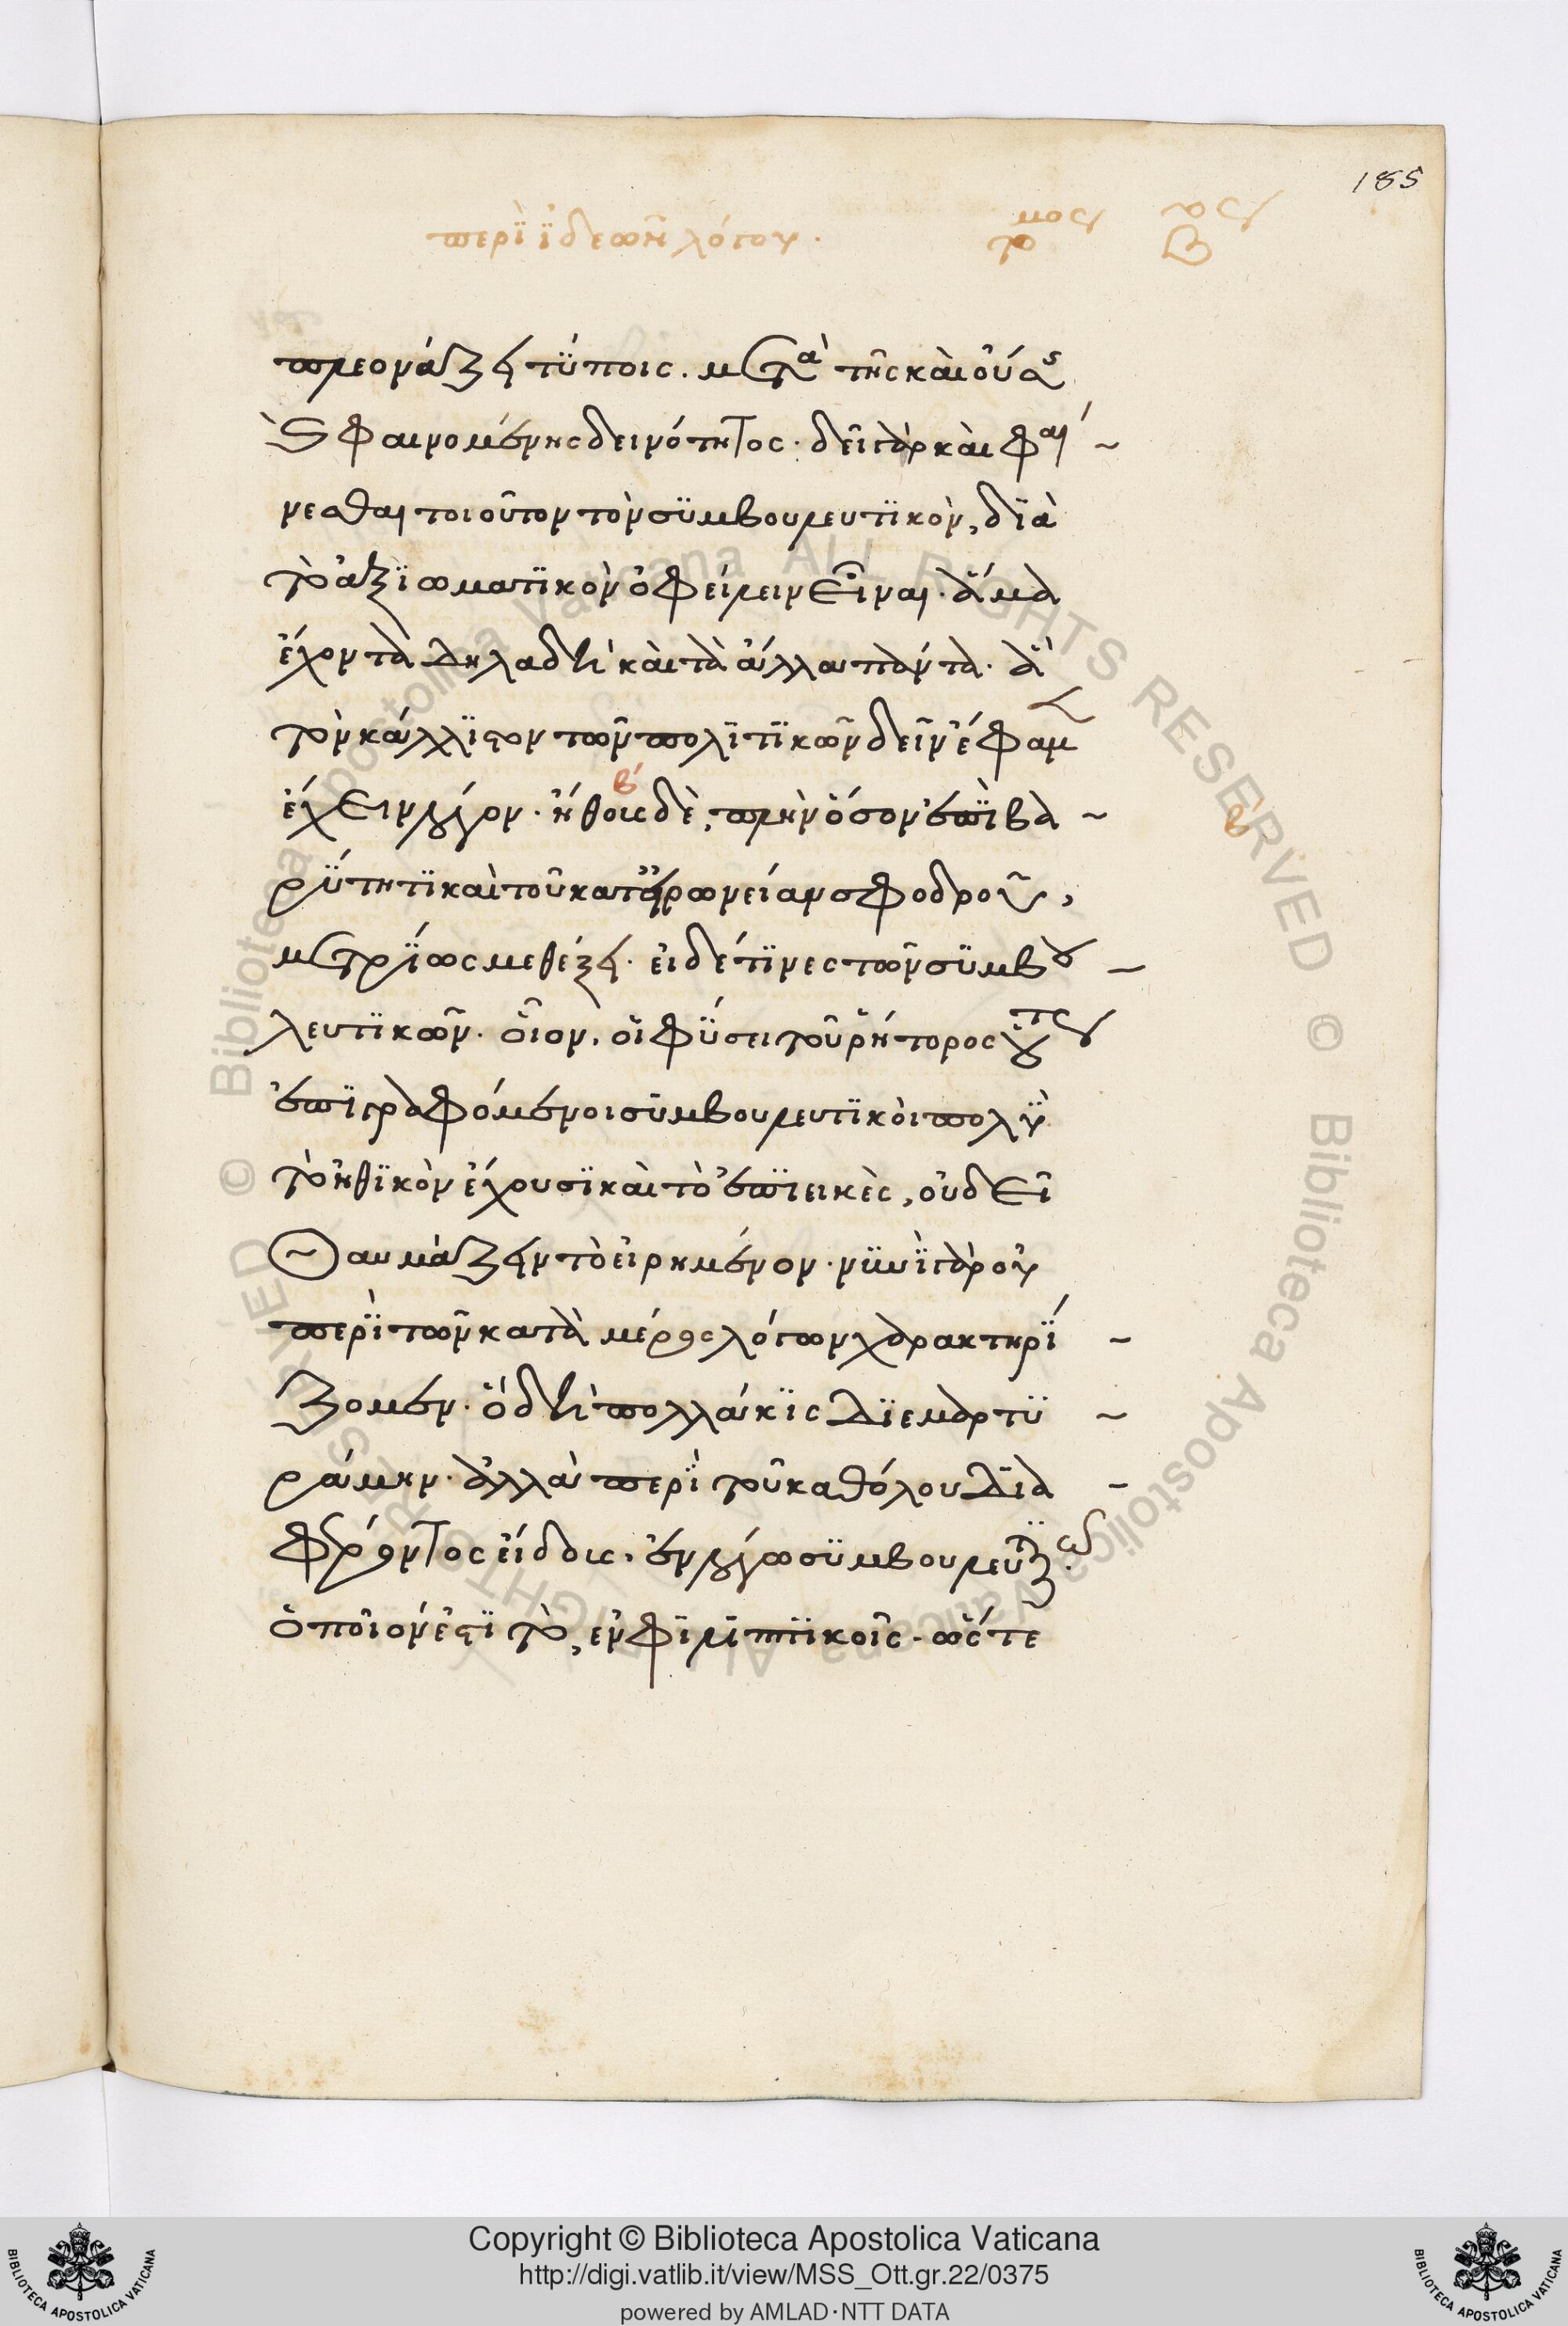 185
περὶ ἰδεῶν λόγου. τόμος βος
πλεονάζει τύποις. μετὰ τῆς καὶ οὔσης
καὶ φαινομένης δεινότητος. δεῖ γὰρ καὶ φαί
νεσθαι τοιοῦτον τὸν συμβουλευτικὸν, διὰ
τὸ ἀξιωματικὸν ὀφείλειν εἶναι. ἅμα
ἔχοντα δηλαδὴ καὶ τὰ ἄλλα πάντα. ἃ
τὸν κάλλιστον τῶν πολιτικῶν δεῖν ἔφαμεν
ἔχειν λόγον. ἤθους δὲ, πλὴν ὅσον ἐπὶ βα
β
β
ρύτητι καὶ τοῦ κατ' εἰρωνείαν σφοδροῦ,
μετρίως μεθέξει. εἰ δέ τινες τῶν συμβου
λευτικῶν. οἷον, οἱ φύσει τοῦ ῥήτορος οὕτως
ἐπιγραφόμενοι συμβουλευτικοὶ πολὺ
τὸ ἠθικὸν ἔχουσι καὶ τὸ ἐπιεικὲς, οὐ δεῖ
θαυμάζειν τὸ εἰρημένον. νυνὶ γὰρ οὐ
περὶ τῶν κατὰ μέρος λόγων χαρακτηρί
ζομεν. ὃ δὴ πολλάκις διεμαρτυ
ράμην. ἀλλὰ περὶ τοῦ καθόλου δια
φέροντος εἴδους. ἐν λόγῳ συμβουλευτικῷ.
ὁποῖον ἐστὶ τὸ, ἐν φιλιππικοῖς. ὥστε
Copyright © Biblioteca Apostolica Vaticana
http://digi.vatlib.it/view/MSS_Ott.gr.22/0375
powered by AMLAD·NTT DATA